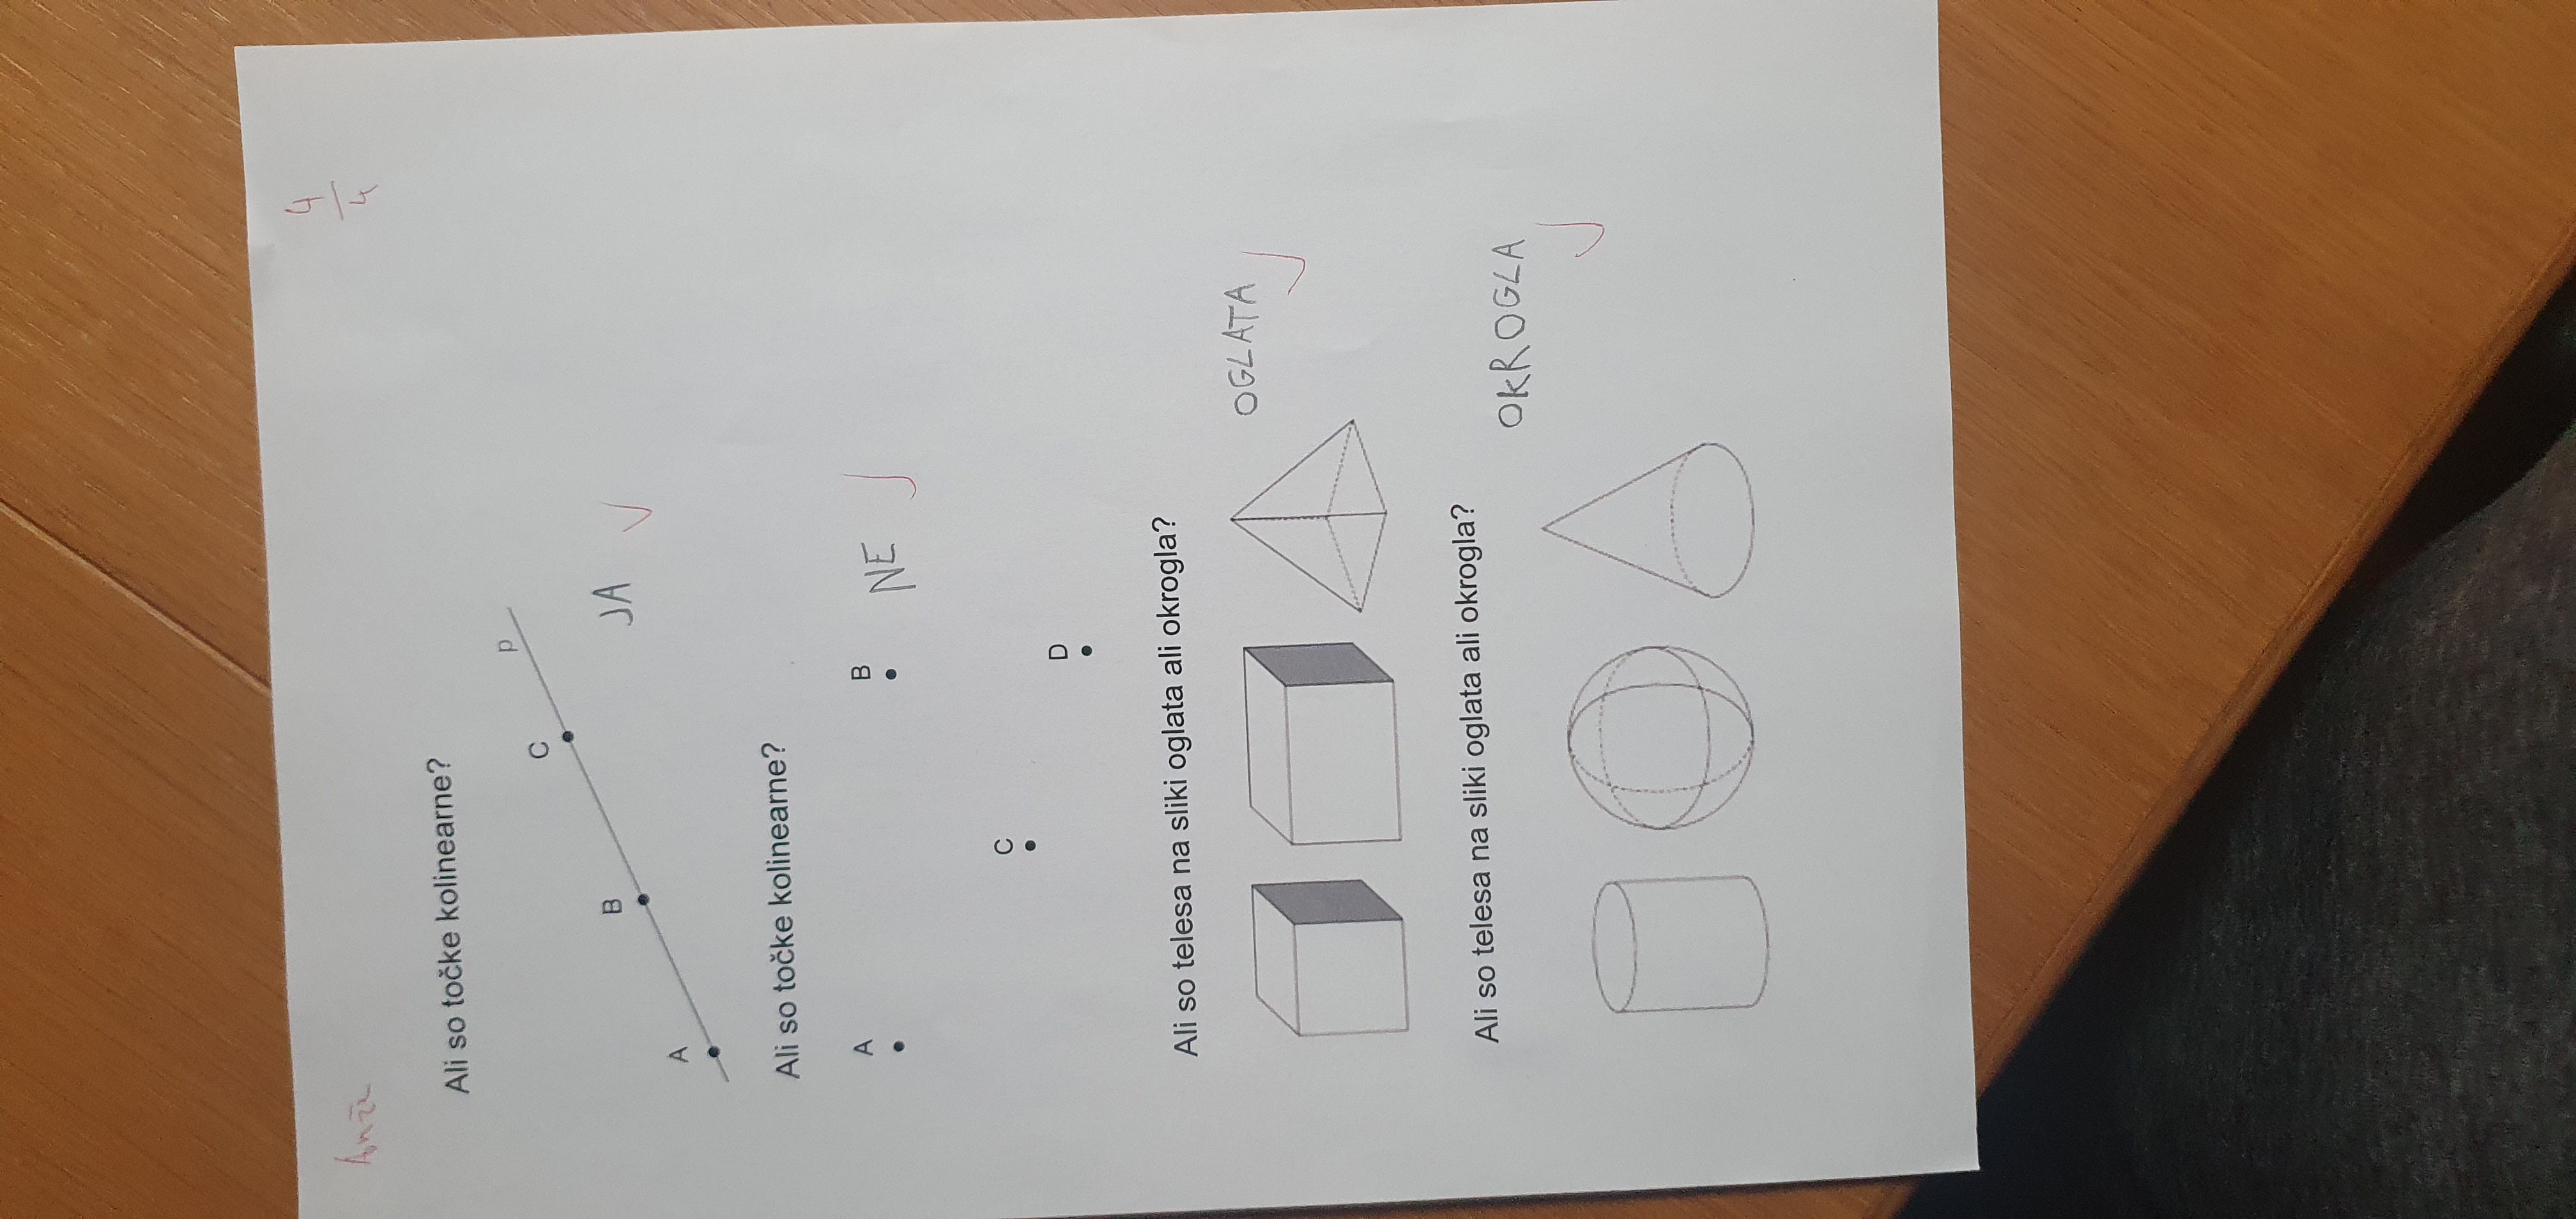 Anže
4
4
Ali so točke kolinearne?
p
C
B
A
JA
Ali so točke kolinearne?
A
B
NE
C
D
Ali so telesa na sliki oglata ali okrogla?
OGLATA
Ali so telesa na sliki oglata ali okrogla?
OKROGLA